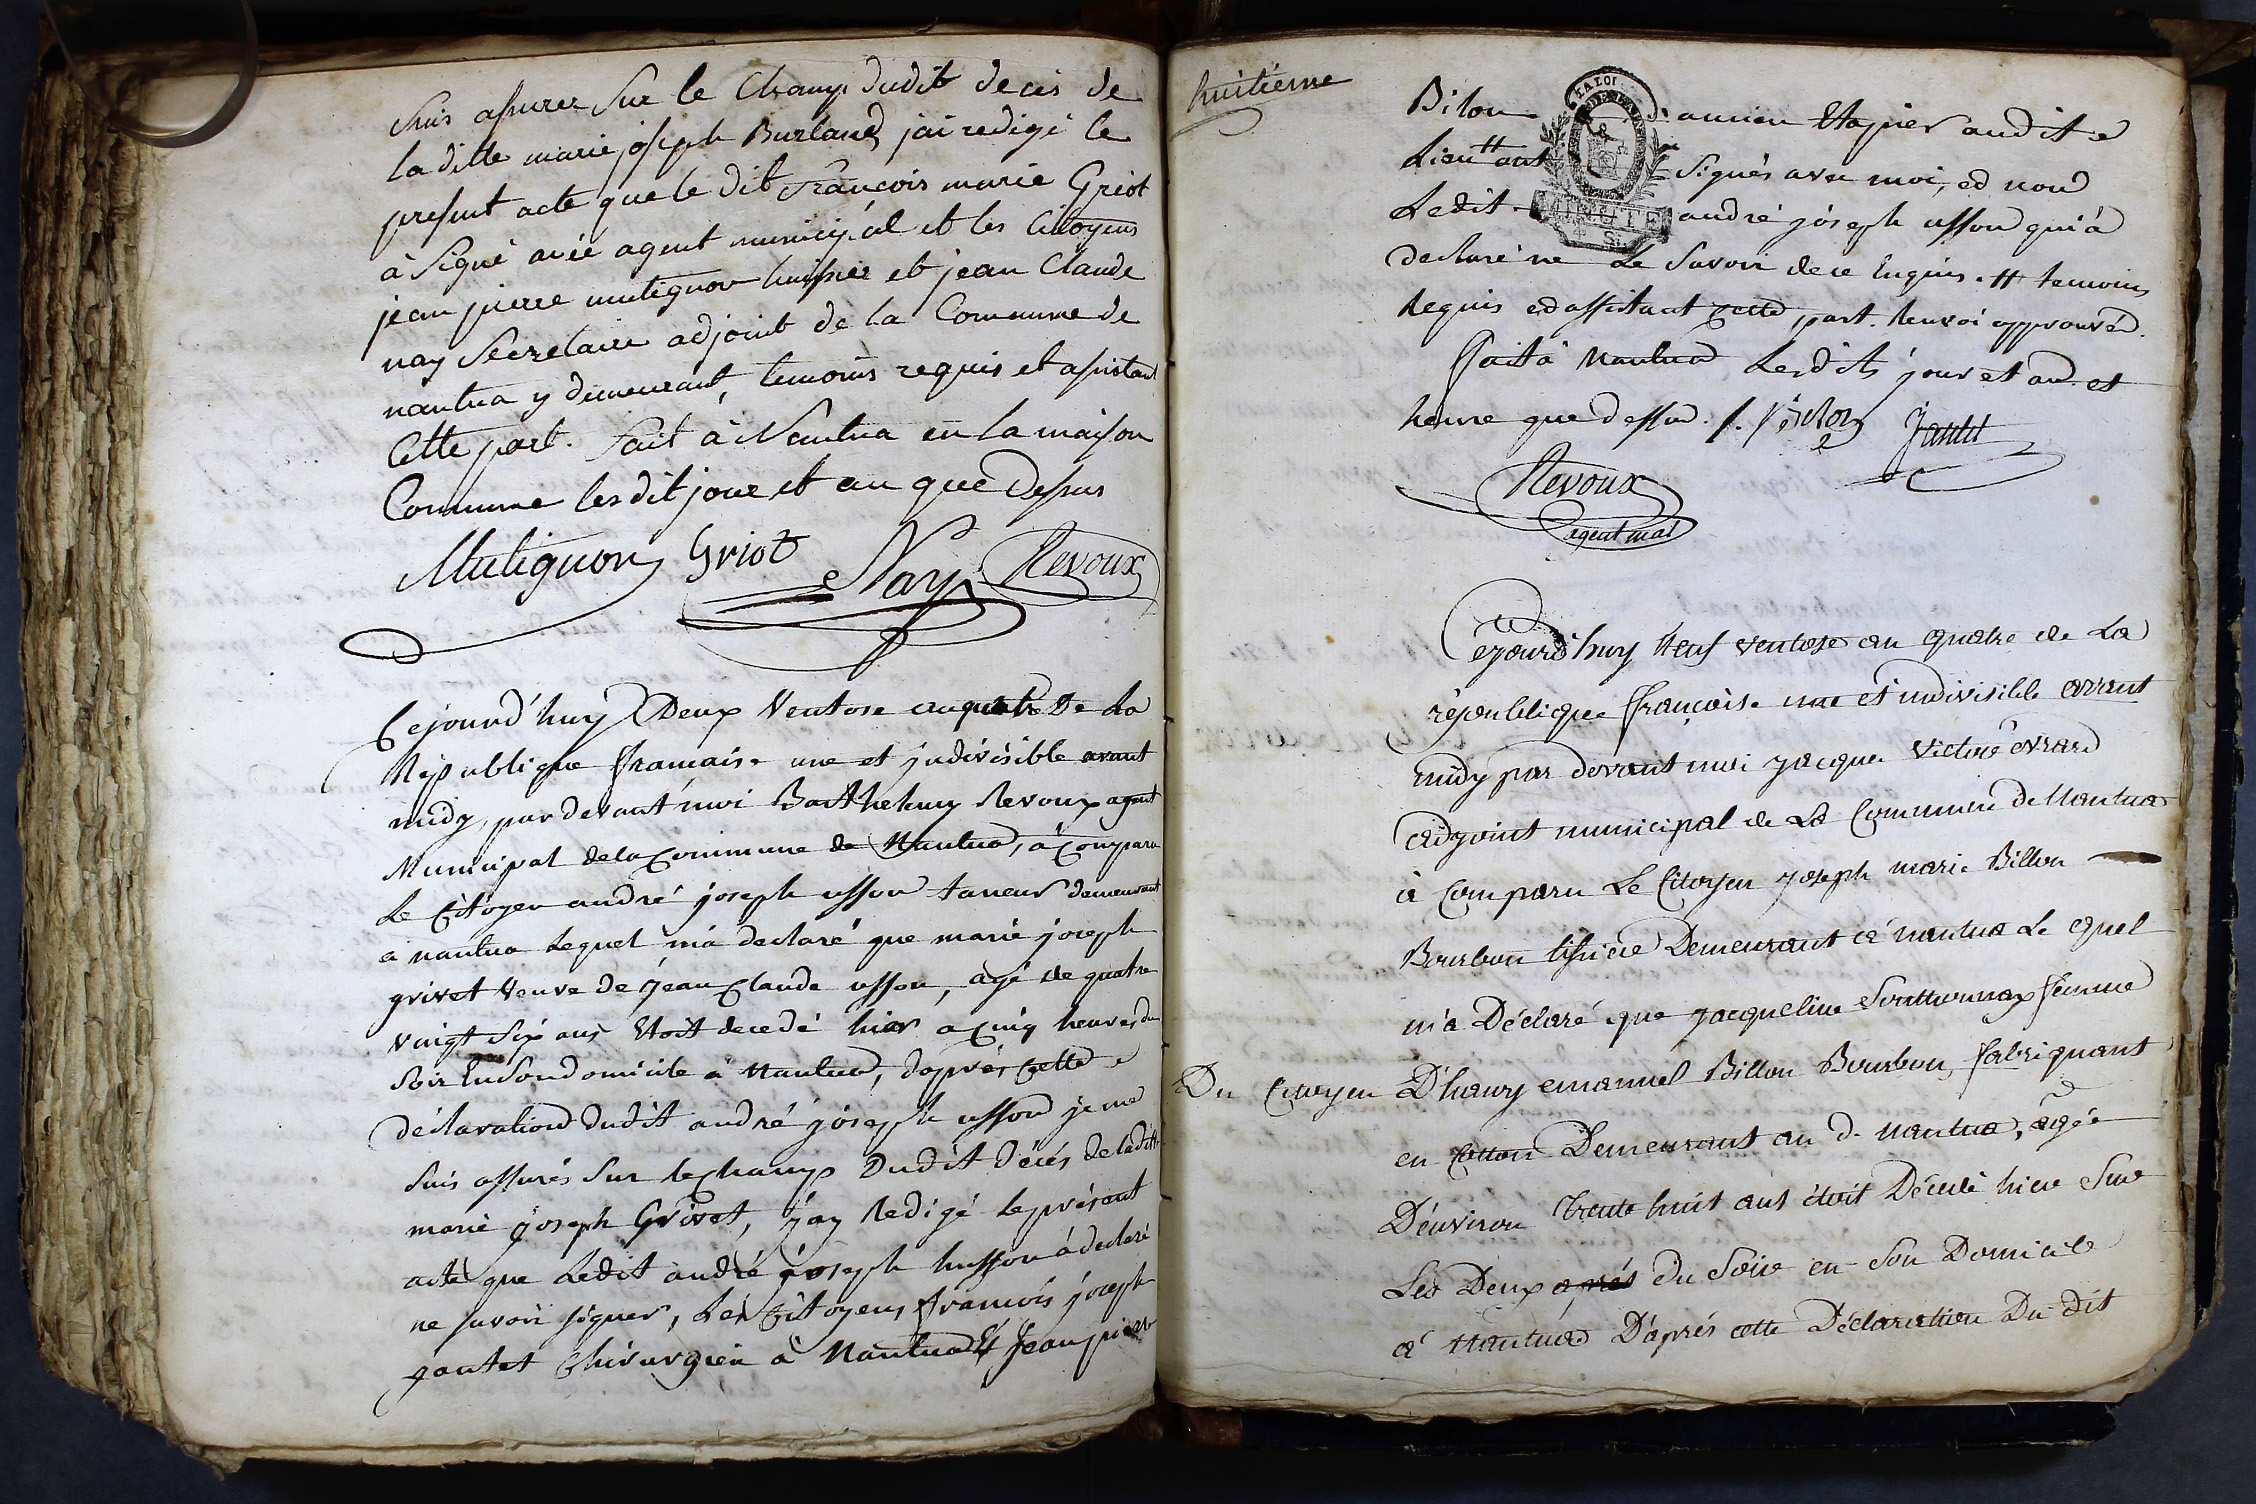 suis assurer sur le Champ dudit deces de
la ditte marie joseph Burland jai redigé le
present acte que le dit francois marie Griot
à signé avec agent municipal et les Citoyens
jean pierre mutignon huissier et jean Claude
nay Secretaire adjoint de la Commune de
nantua y demeurant, temoins requis et assistant
Cette part. fait à Nantua en la maison
Commune lesdit jour et an que dessus
Mutignon Griot Nay Revoux
Cejourd'huy Deux Ventose an quatre De La
République francaise une et jndivisible avant
midy, par devant moi Barthelemy Revoux agent
Municipal de la Commune de Nantua, à Comparu
Le Citoyen andré joseph usson taneur demeurant
a nantua Lequel m'a declaré que marie joseph
grivet Veuve de jean Claude usson, agé de quatre
vingt six ans Etoit decedé hier a Cinq heures du
soir En son domicile a Nantua, d'après Cette
déclaration dudit andré joseph usson je me
suis assurés sur le champ Dudit décès de laditte
marie joseph Grivet, j'ay Redigé le présent
acte que Ledit andré joseph husson à declaré
ne savoir signer, Les Citoyens francois joseph
jantet Chirurgien à Nantua Et Jean pierre
huitieme
Bilon ancien Etapier audit
Lieu signés avec moi, et non
Ledit andré joseph usson qui à
declaré ne Le savoir de ce Enquis. # temoins
Requis et assistant Cette part. Renvoi approuvé.
fait à Nantua Lesdits jour et an et
heure que dessus. J. P. Bilon Jantet
Revoux
agent mal
Cejourd'huy Neuf ventose an quatre de La
république françoise une et indivisible avant
midy par devant moi jacque Victore évrard
adjoint municipal de La Commune de Nantua
à Comparu Le Citoyen joseph marie Billon
Bourbon Demeurant à nantua Le quel
m'a Déclaré que jacqueline femme
Du Citoyen D'hanry emanuel Billon Bourbon, fabriquant
en Cotton Demeurant au d. Nantua, agée
D'environ trente huit ans étoit Décedé hiere sur
Les Deux après Du Soire en Son Domicile
à Nantua D'après cette Déclaration Du dit